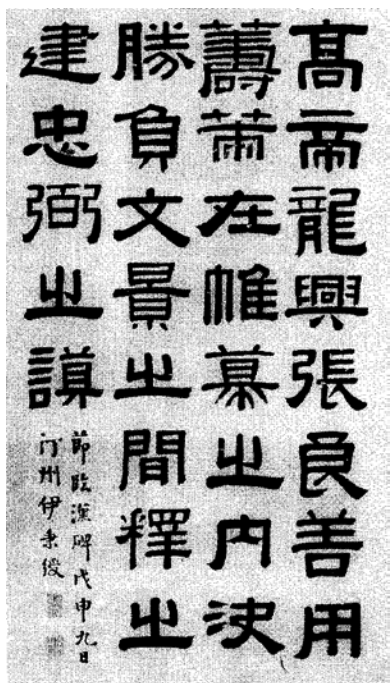 高帝龍興張良善用
籌策在帷幕之內決
勝負文景之間釋之
建忠弼之謨
節臨漢碑戊申九日
汀州伊秉綬